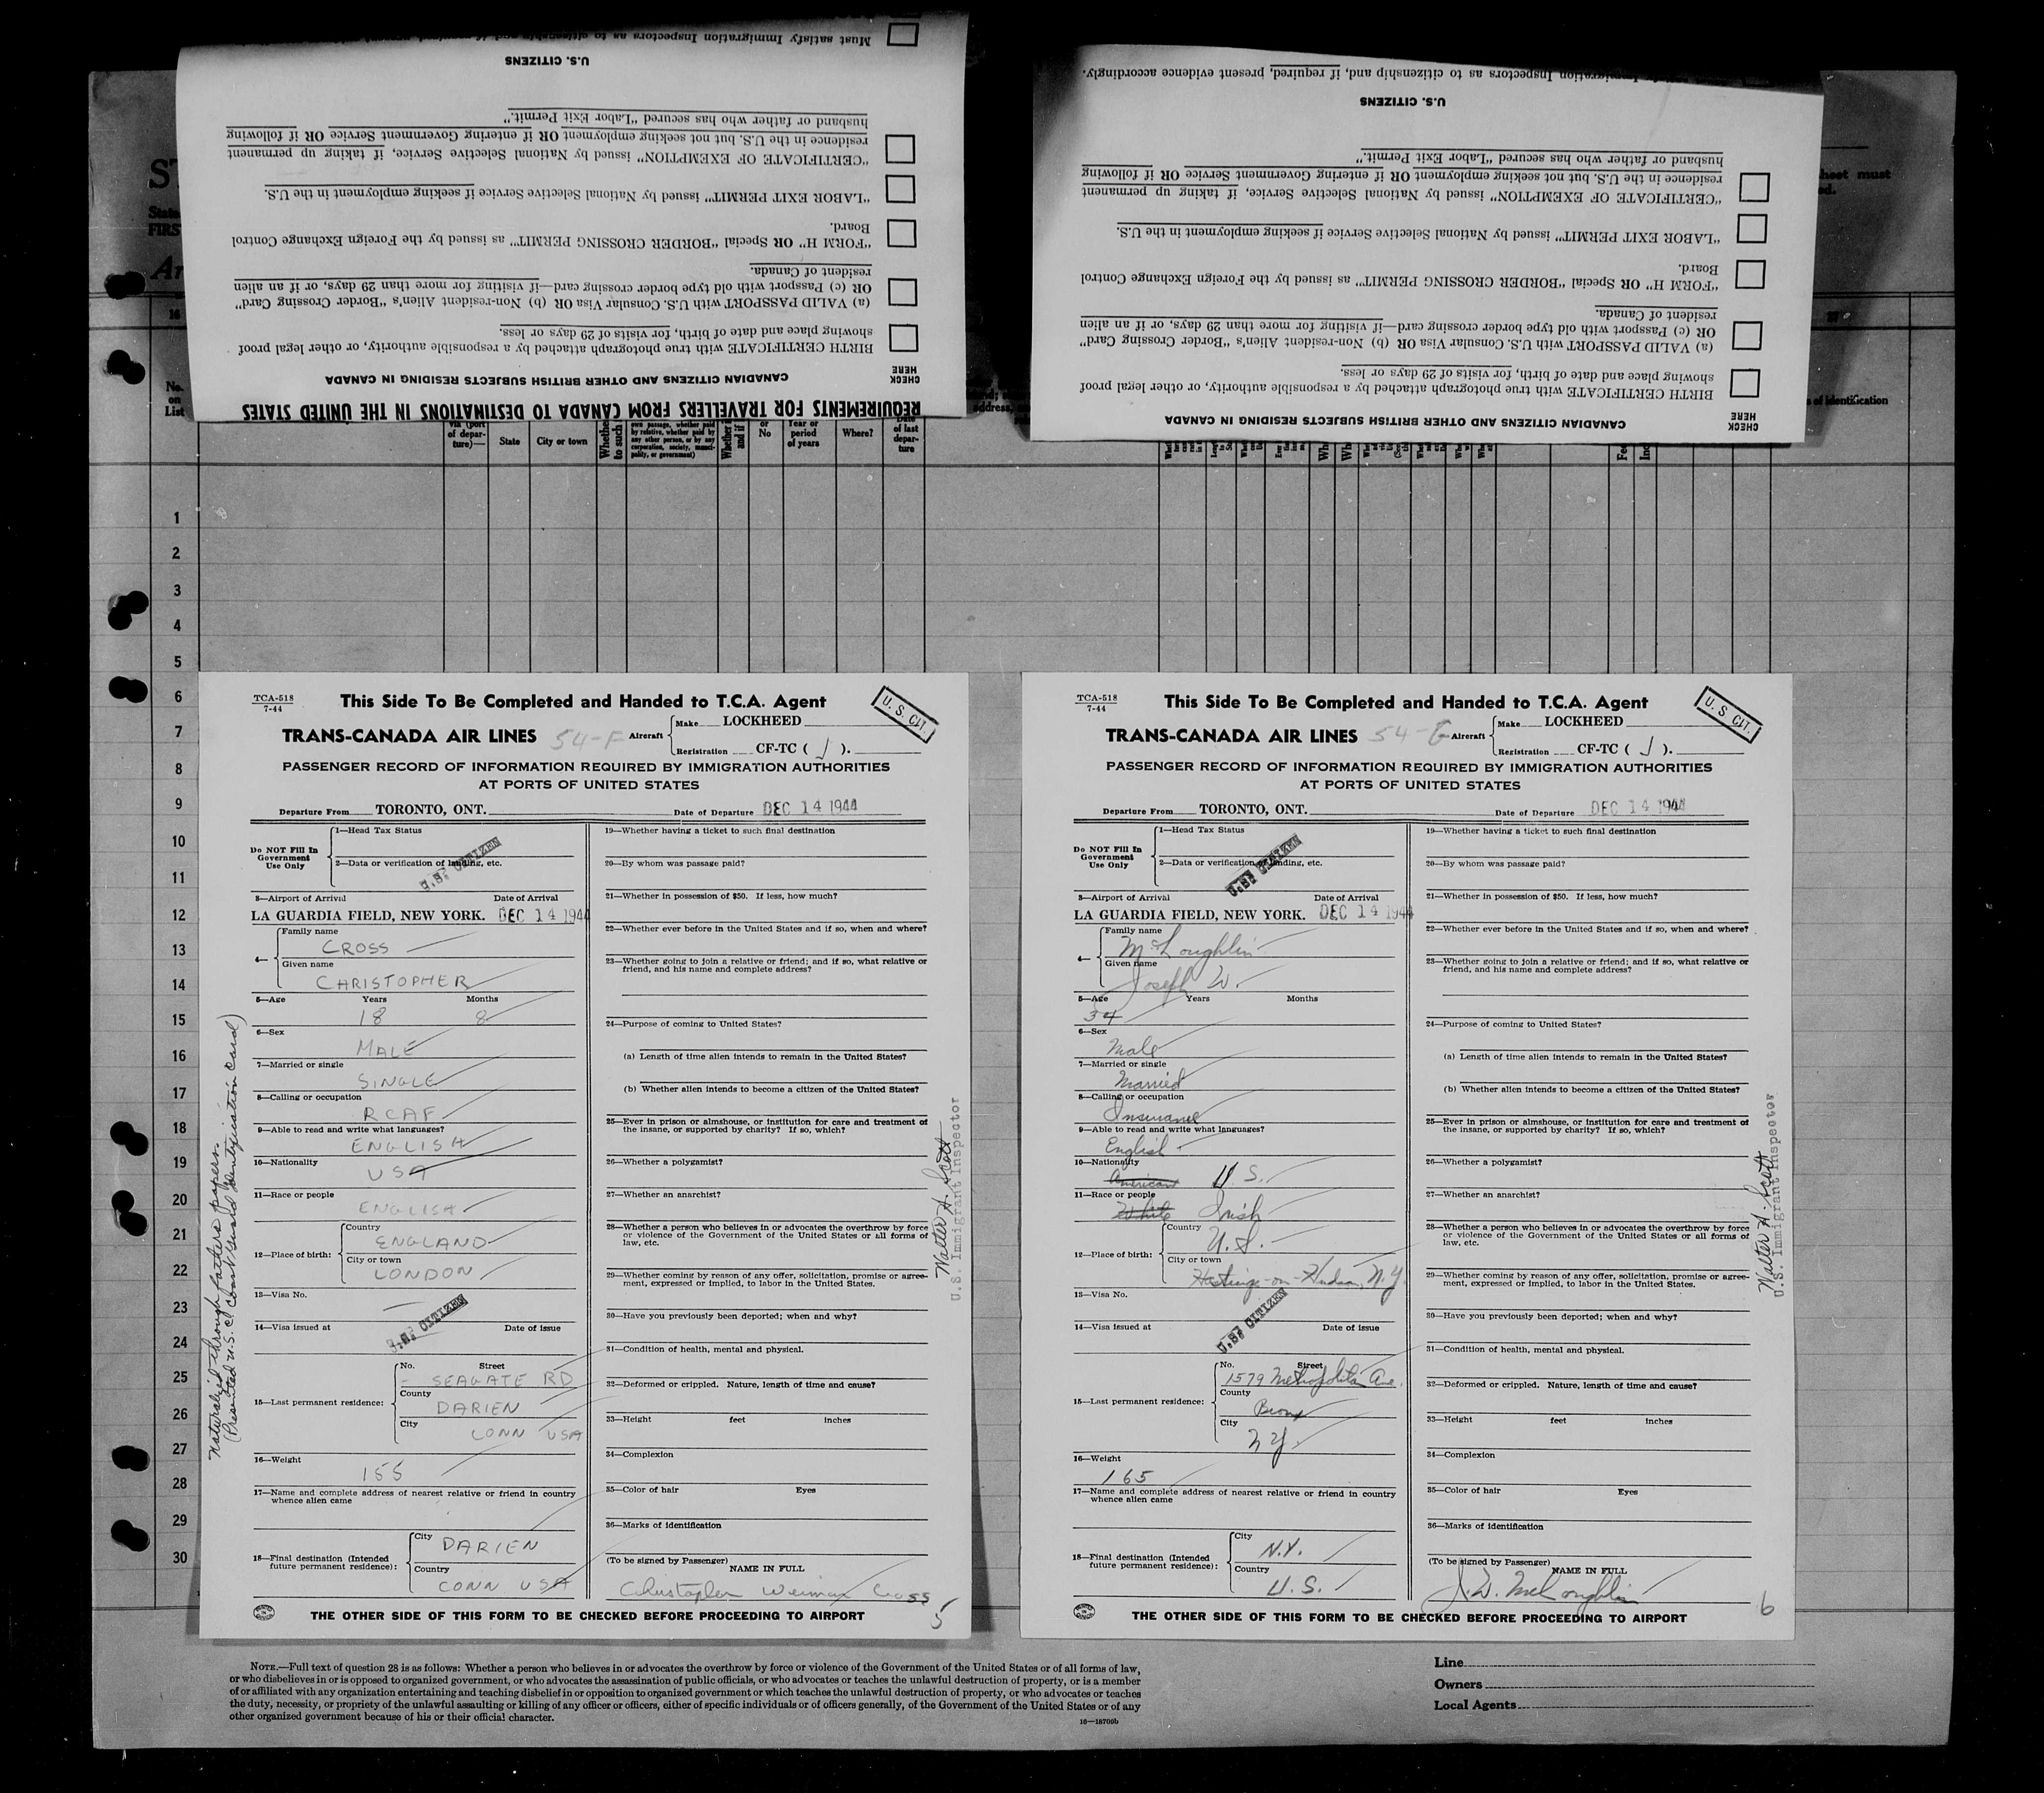 Must satisfy Immigration Inspectors as to citizenship and if required,
U.S. CITIZENS
husband or father who has secured "Labor Exit Permit."
residence in the U.S. but not seeking employment OR if entering Government Service OR if following
"CERTIFICATE OF EXEMPTION" issued by National Selective Service, if taking up permanent
"LABOR EXIT PERMIT" issued by National Selective Service if seeking employment in the U.S.
Board.
"FORM H" OR Special "BORDER CROSSING PERMIT" as issued by the Foreign Exchange Control
resident of Canada.
OR (c) Passport with old type border crossing card—if visiting for more than 29 days, or if an alien
(a) VALID PASSPORT with U.S. Consular Visa OR (b) Non-resident Alien's "Border Crossing Card"
showing place and date of birth, for visits of 29 days or less.
BIRTH CERTIFICATE with true photograph attached by a responsible authority, or other legal proof
CHECK HERE
CANADIAN CITIZENS AND OTHER BRITISH SUBJECTS RESIDING IN CANADA
REQUIREMENTS FOR TRAVELLERS FROM CANADA TO DESTINATIONS IN THE UNITED STATES
Immigration Inspectors as to citizenship and, if required, present evidence accordingly.
U.S. CITIZENS
husband or father who has secured "Labor Exit Permit."
residence in the U.S. but not seeking employment OR if entering Government Service OR if following
"CERTIFICATE OF EXEMPTION" issued by National Selective Service, if taking up permanent
"LABOR EXIT PERMIT" issued by National Selective Service if seeking employment in the U.S.
Board.
"FORM H" OR Special "BORDER CROSSING PERMIT" as issued by the Foreign Exchange Control
resident of Canada.
OR (c) Passport with old type border crossing card—if visiting for more than 29 days, or if an alien
(a) VALID PASSPORT with U.S. Consular Visa OR (b) Non-resident Alien's "Border Crossing Card"
showing place and date of birth, for visits of 29 days or less.
BIRTH CERTIFICATE with true photograph attached by a responsible authority, or other legal proof
CHECK HERE
CANADIAN CITIZENS AND OTHER BRITISH SUBJECTS RESIDING IN CANADA
sheet must
of identification
No. on List
via (port of departure)—
State
City or town
own passage, whether paid by relative, whether paid by any other person, or by any corporation, society, municipality, or government)
or No
Year or period of years
Where?
Date of last departure
1
2
3
4
5
6
7
8
9
10
11
12
13
14
15
16
17
18
19
20
21
22
23
24
25
26
27
28
29
30
TCA-518
7-44
This Side To Be Completed and Handed to T.C.A. Agent
U. S. CIT.
TRANS-CANADA AIR LINES 54-F
Aircraft
Make LOCKHEED
Registration CF-TC ( J ).
PASSENGER RECORD OF INFORMATION REQUIRED BY IMMIGRATION AUTHORITIES
AT PORTS OF UNITED STATES
Departure From TORONTO, ONT. Date of Departure DEC 14 1944
Do NOT Fill In Government Use Only
1—Head Tax Status
2—Data or verification of landing, etc.
U.S. CITIZEN
3—Airport of Arrival Date of Arrival
LA GUARDIA FIELD, NEW YORK. DEC 14 1944
4—
Family name
CROSS
Given name
CHRISTOPHER
5—Age Years Months
18 8
6—Sex
MALE
7—Married or single
SINGLE
8—Calling or occupation
RCAF
9—Able to read and write what languages?
ENGLISH
10—Nationality
USA
11—Race or people
ENGLISH
12—Place of birth:
Country
ENGLAND
City or town
LONDON
13—Visa No.
14—Visa issued at Date of issue
U.S. CITIZEN
15—Last permanent residence:
No. Street
- SEAGATE RD
County
DARIEN
City
CONN USA
16—Weight
155
17—Name and complete address of nearest relative or friend in country
whence alien came
18—Final destination (Intended
future permanent residence):
City
DARIEN
Country
CONN USA
19—Whether having a ticket to such final destination
20—By whom was passage paid?
21—Whether in possession of $50. If less, how much?
22—Whether ever before in the United States and if so, when and where?
23—Whether going to join a relative or friend; and if so, what relative or
friend, and his name and complete address?
24—Purpose of coming to United States?
(a) Length of time alien intends to remain in the United States?
(b) Whether alien intends to become a citizen of the United States?
25—Ever in prison or almshouse, or institution for care and treatment of
the insane, or supported by charity? If so, which?
26—Whether a polygamist?
27—Whether an anarchist?
28—Whether a person who believes in or advocates the overthrow by force
or violence of the Government of the United States or all forms of
law, etc.
29—Whether coming by reason of any offer, solicitation, promise or agree-
ment, expressed or implied, to labor in the United States.
30—Have you previously been deported; when and why?
31—Condition of health, mental and physical.
32—Deformed or crippled. Nature, length of time and cause?
33—Height feet inches
34—Complexion
35—Color of hair Eyes
36—Marks of identification
(To be signed by Passenger)
NAME IN FULL
Christopher Weimar Cross
5
THE OTHER SIDE OF THIS FORM TO BE CHECKED BEFORE PROCEEDING TO AIRPORT
Naturalized through father's papers.
(Presented U.S. Coast Guard Identification Card)
Walter H. Scott
U.S. Immigrant Inspector
TCA-518
7-44
This Side To Be Completed and Handed to T.C.A. Agent
U. S. CIT.
TRANS-CANADA AIR LINES 54-G
Aircraft
Make LOCKHEED
Registration CF-TC ( J ).
PASSENGER RECORD OF INFORMATION REQUIRED BY IMMIGRATION AUTHORITIES
AT PORTS OF UNITED STATES
Departure From TORONTO, ONT. Date of Departure DEC 14 1944
Do NOT Fill In Government Use Only
1—Head Tax Status
2—Data or verification of landing, etc.
U.S. CITIZEN
3—Airport of Arrival Date of Arrival
LA GUARDIA FIELD, NEW YORK. DEC 14 1944
4—
Family name
McLoughlin
Given name
Joseph W.
5—Age Years Months
34
6—Sex
Male
7—Married or single
Married
8—Calling or occupation
Insurance
9—Able to read and write what languages?
English
10—Nationality
American U. S.
11—Race or people
White Irish
12—Place of birth:
Country
U. S.
City or town
Hastings-on-Hudson, N.Y.
13—Visa No.
14—Visa issued at Date of issue
U.S. CITIZEN
15—Last permanent residence:
No. Street
1579 Metropolitan Ave.
County
Bronx
City
N Y
16—Weight
165
17—Name and complete address of nearest relative or friend in country
whence alien came
18—Final destination (Intended
future permanent residence):
City
N.Y.
Country
U. S.
19—Whether having a ticket to such final destination
20—By whom was passage paid?
21—Whether in possession of $50. If less, how much?
22—Whether ever before in the United States and if so, when and where?
23—Whether going to join a relative or friend; and if so, what relative or
friend, and his name and complete address?
24—Purpose of coming to United States?
(a) Length of time alien intends to remain in the United States?
(b) Whether alien intends to become a citizen of the United States?
25—Ever in prison or almshouse, or institution for care and treatment of
the insane, or supported by charity? If so, which?
26—Whether a polygamist?
27—Whether an anarchist?
28—Whether a person who believes in or advocates the overthrow by force
or violence of the Government of the United States or all forms of
law, etc.
29—Whether coming by reason of any offer, solicitation, promise or agree-
ment, expressed or implied, to labor in the United States.
30—Have you previously been deported; when and why?
31—Condition of health, mental and physical.
32—Deformed or crippled. Nature, length of time and cause?
33—Height feet inches
34—Complexion
35—Color of hair Eyes
36—Marks of identification
(To be signed by Passenger)
NAME IN FULL
J. W. McLoughlin
6
THE OTHER SIDE OF THIS FORM TO BE CHECKED BEFORE PROCEEDING TO AIRPORT
Walter H. Scott
U.S. Immigrant Inspector
NOTE.—Full text of question 28 is as follows: Whether a person who believes in or advocates the overthrow by force or violence of the Government of the United States or of all forms of law,
or who disbelieves in or is opposed to organized government, or who advocates the assassination of public officials, or who advocates or teaches the unlawful destruction of property, or is a member
of or affiliated with any organization entertaining and teaching disbelief in or opposition to organized government or which teaches the unlawful destruction of property, or who advocates or teaches
the duty, necessity, or propriety of the unlawful assaulting or killing of any officer or officers, either of specific individuals or of officers generally, of the Government of the United States or of any
other organized government because of his or their official character.
16—18700b
Line
Owners
Local Agents